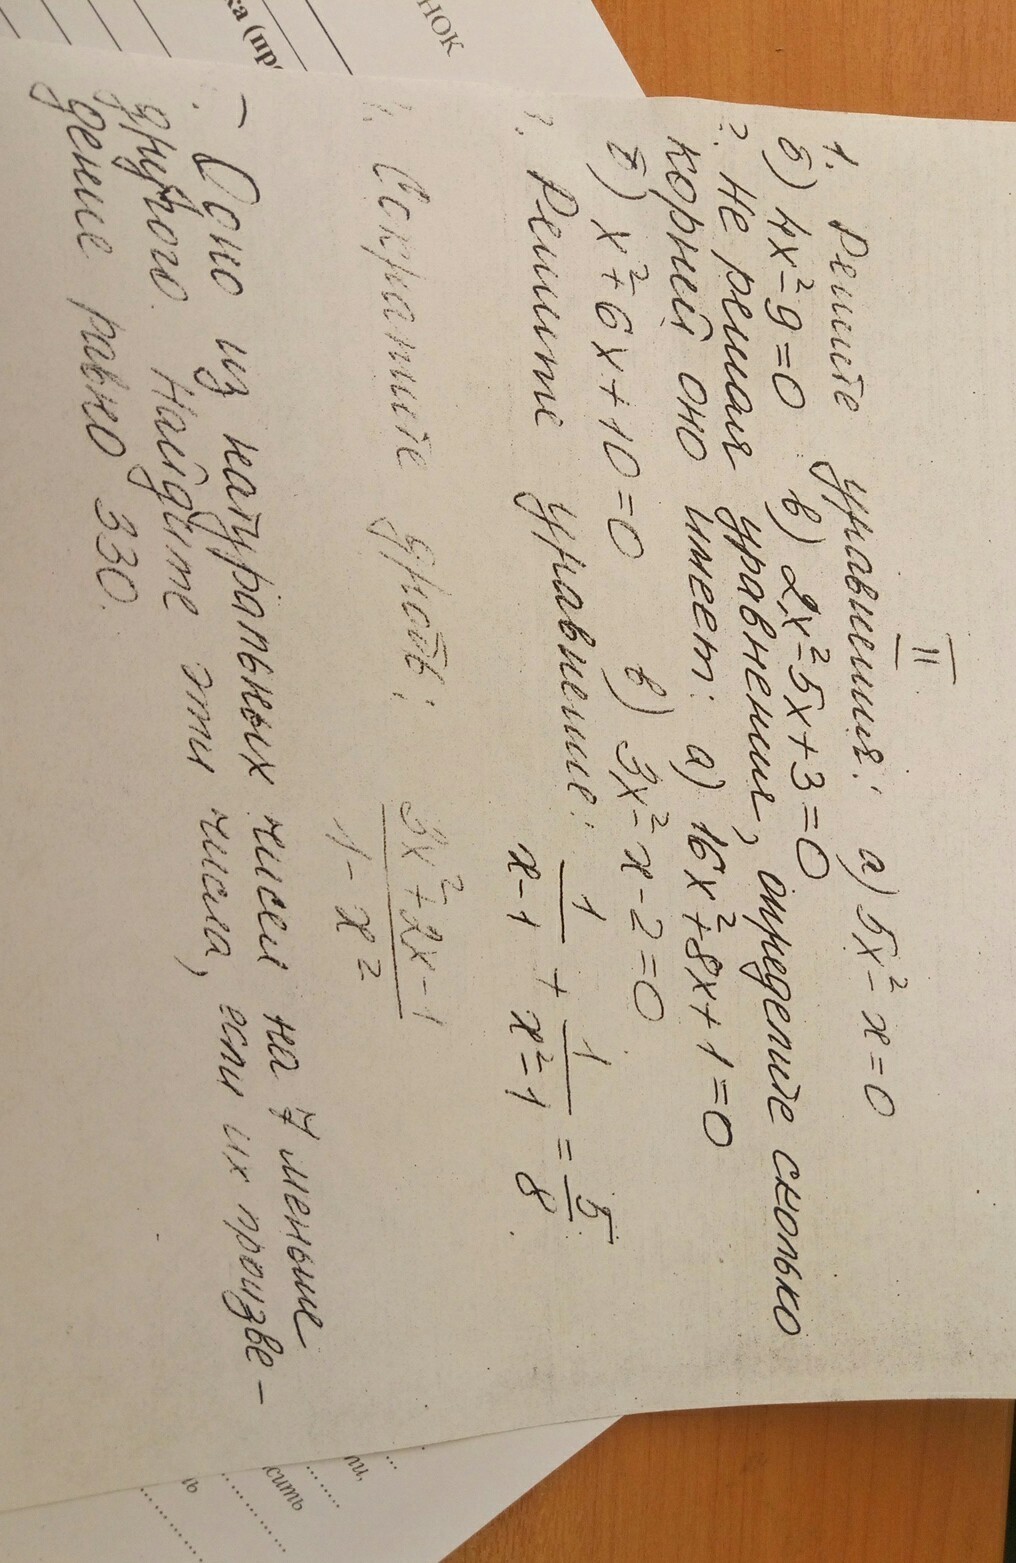 II
1. Решите уравнения: а) 5x² - x = 0
б) 4x² - 9 = 0 в) 2x² - 5x + 3 = 0
2. Не решая уравнения, определите сколько
корней оно имеет: а) 16x² + 8x + 1 = 0
б) x² + 6x + 10 = 0 в) 3x² - x - 2 = 0
3. Решите уравнение: 1/(x-1) + 1/(x²-1) = 5/8.
4. Сократите дробь: (3x² + 2x - 1)/(1 - x²)
Одно из натуральных чисел на 7 меньше
другого. Найдите эти числа, если их произве-
дение равно 330.
нок
ка (пр
ли,
сить
ть